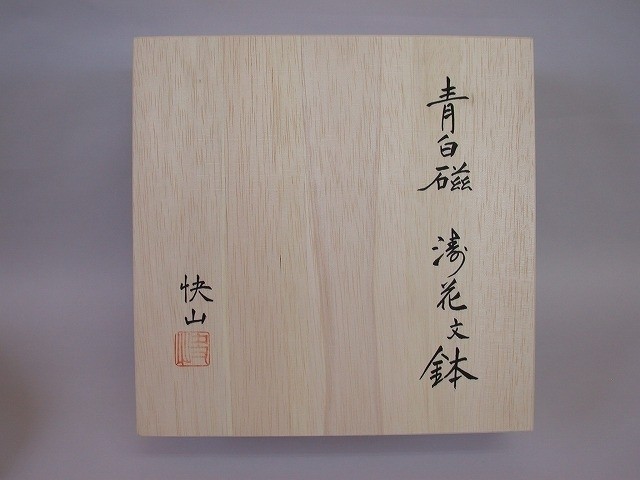 青白磁 涛花文鉢
快山